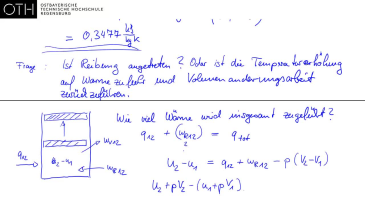 OTH
OSTBAYERISCHE
TECHNISCHE HOCHSCHULE
REGENSBURG
= 0,3477 kJ/kg K
Frage: Ist Reibung angetreten? Oder ist die Temperaturerhöhung
auf Wärmezufuhr und Volumenänderungsarbeit
zurückzuführen.
Wie viel Wärme wird insgesamt zugeführt?
q12 + (wR12) = qtot
2
wv12
q12
u2-u1
wR12
u2 - u1 = q12 + wR12 - p(V2-V1)
u2+pV2 - (u1+pV1)